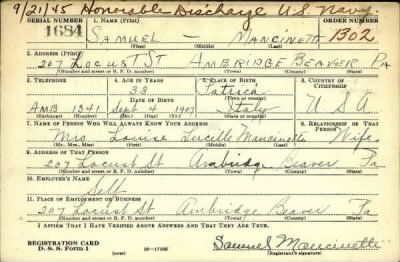 9/21/45 Honorable Discharge U.S. Navy.
SERIAL NUMBER 1. NAME (Print) ORDER NUMBER
1684 SAMUEL — MANCINETTI 1302
(First) (Middle) (Last)
2. ADDRESS (Print)
207 LOCUST ST AMBRIDGE BEAVER PA
(Number and street or R. F. D. number) (Town) (County) (State)
3. TELEPHONE 4. AGE IN YEARS 5. PLACE OF BIRTH 6. COUNTRY OF CITIZENSHIP
33 Patrica
DATE OF BIRTH (Town or county)
AMB 1341 Sept. 4 1907 Italy U S A
(Exchange) (Number) (Mo.) (Day) (Yr.) (State or country)
7. NAME OF PERSON WHO WILL ALWAYS KNOW YOUR ADDRESS 8. RELATIONSHIP OF THAT PERSON
Mrs Louise Lucille Mancinetti Wife
(Mr., Mrs., Miss) (First) (Middle) (Last)
9. ADDRESS OF THAT PERSON
207 Locust St Ambridge Beaver Pa
(Number and street or R. F. D. number) (Town) (County) (State)
10. EMPLOYER'S NAME
Self
11. PLACE OF EMPLOYMENT OR BUSINESS
207 Locust St Ambridge Beaver Pa
(Number and street or R. F. D. number) (Town) (County) (State)
I AFFIRM THAT I HAVE VERIFIED ABOVE ANSWERS AND THAT THEY ARE TRUE.
REGISTRATION CARD
D. S. S. Form 1 (over) 16-17105 Samuel Mancinetti
(Registrant's signature)